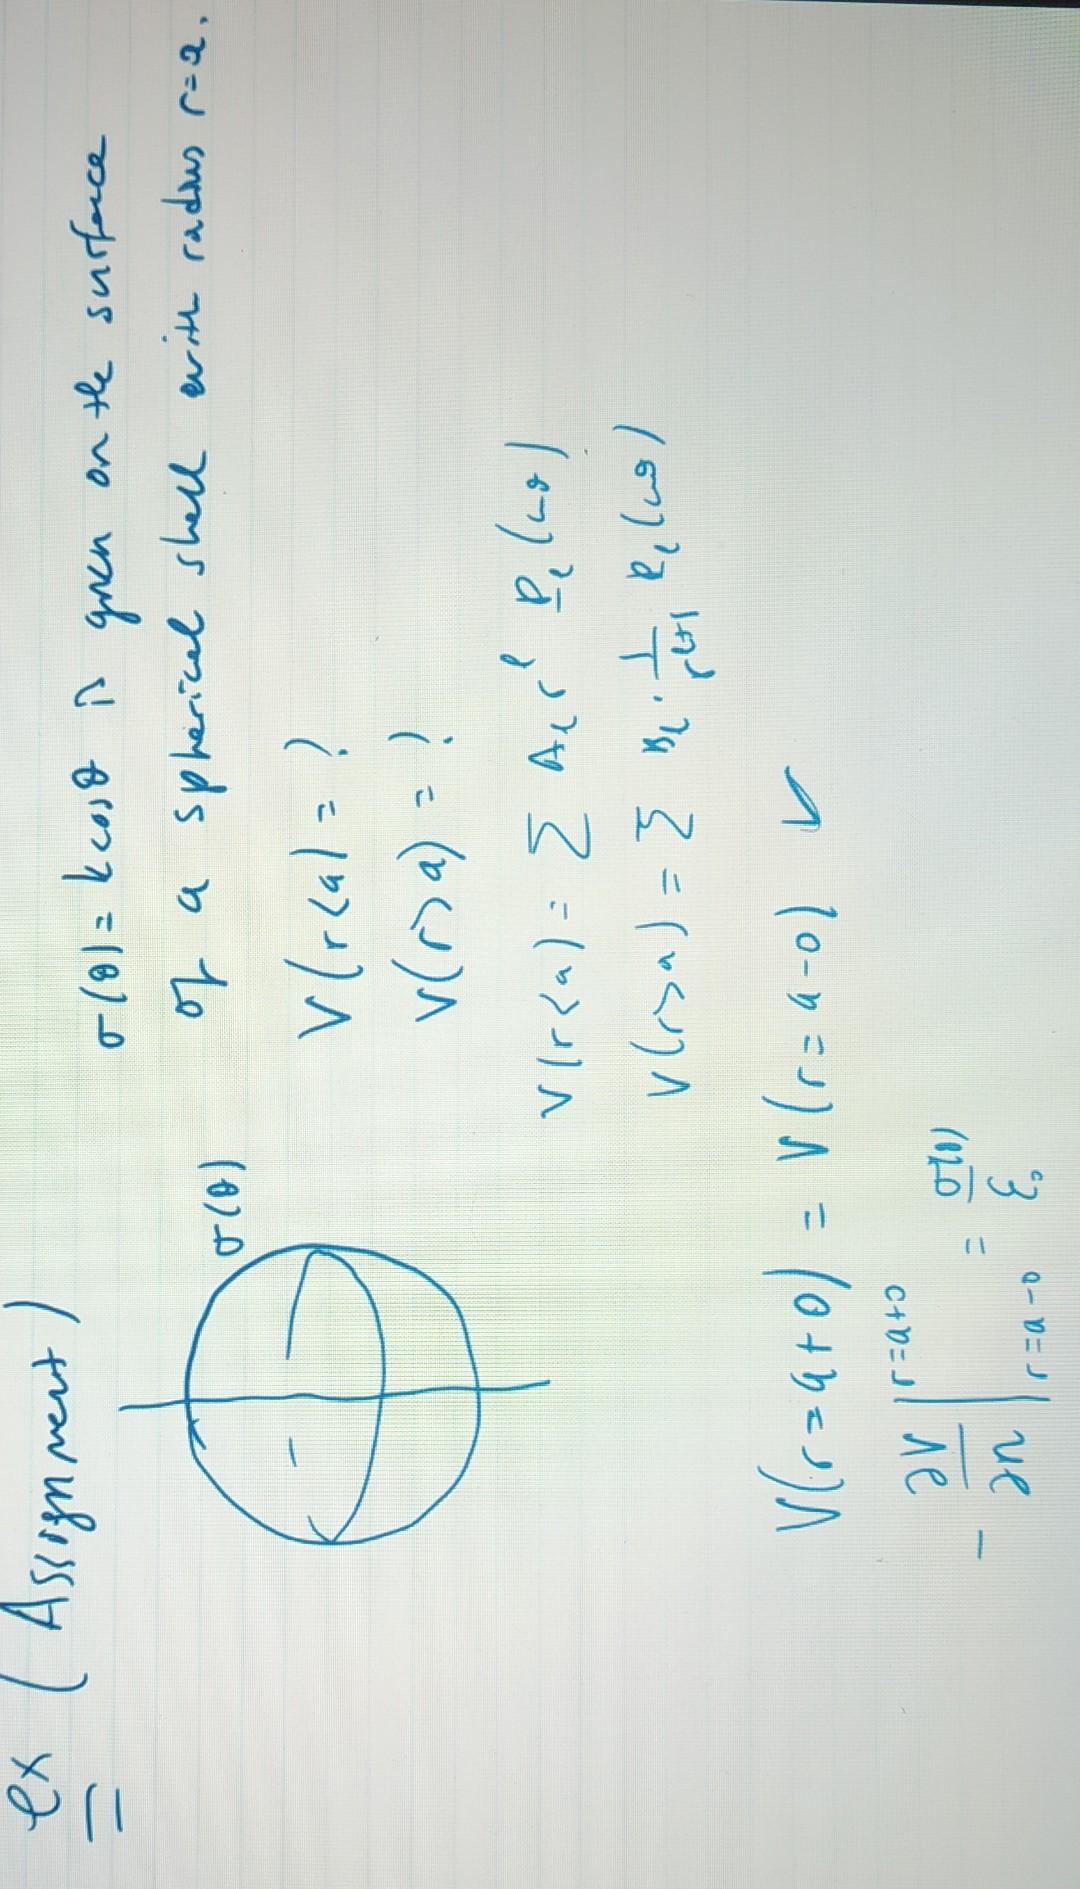 ex (Assignment)
σ(θ) = k cosθ is given on the surface
of a spherical shell with radius r=a.
σ(θ)
V(r<a) = ?
V(r>a) = ?
V(r<a) = Σ Aₗ rˡ Pₗ(cosθ)
V(r>a) = Σ Bₗ · 1/rˡ⁺¹ Pₗ(cosθ)
V(r=a+0) = V(r=a-0) ✓
- ∂V/∂r |r=a+0 r=a-0 = σ(θ)/ε₀